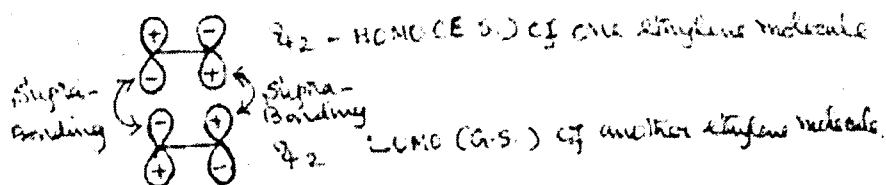 + - ψ2 - HOMO (E.S.) of one ethylene molecule
- +
Supra- Supra-
Bonding Bonding
- +
+ - ψ2 LUMO (G.S.) of another ethylene molecule.